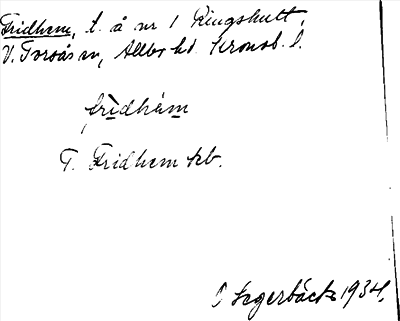 Fridhem, l. å nr 1 Ringshult,
V. Torsås sn, Allbo hd. Kronob. l.
frìdhém
T. Fridhem kb.
Segerbäck 1934.